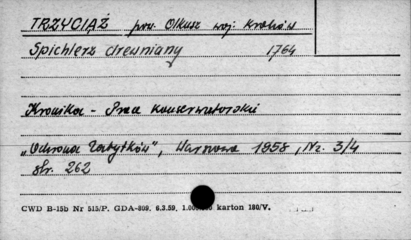 TRZYCIĄŻ pow. Olkusz woj: Kraków
Spichlerz drewniany 1764
Kronika - Prace konserwatorskie
„Ochrona Zabytków", Warszawa 1958, Nr. 3/4
str. 262
CWD B-15b Nr 515/P. GDA-809. 6.3.59. karton 180/V.